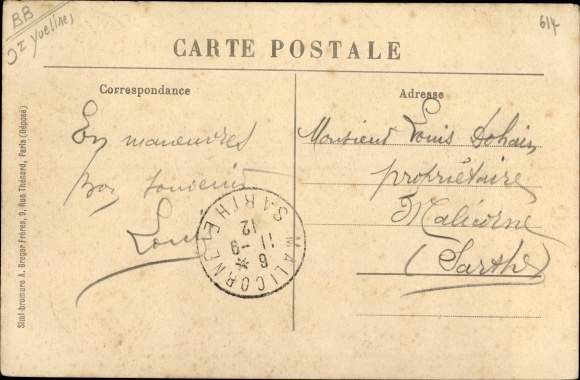 BB
Yvelines
614
CARTE POSTALE
Correspondance
Adresse
En manœuvres
Bon souvenir
Louis
Monsieur Louis
propriétaire
Malicorne
(Sarthe)
MALICORNE * SARTHE
6
11 -9
12
Simi-bromure A. Breger Frères, 9, Rue Thénard, Paris (Déposé)